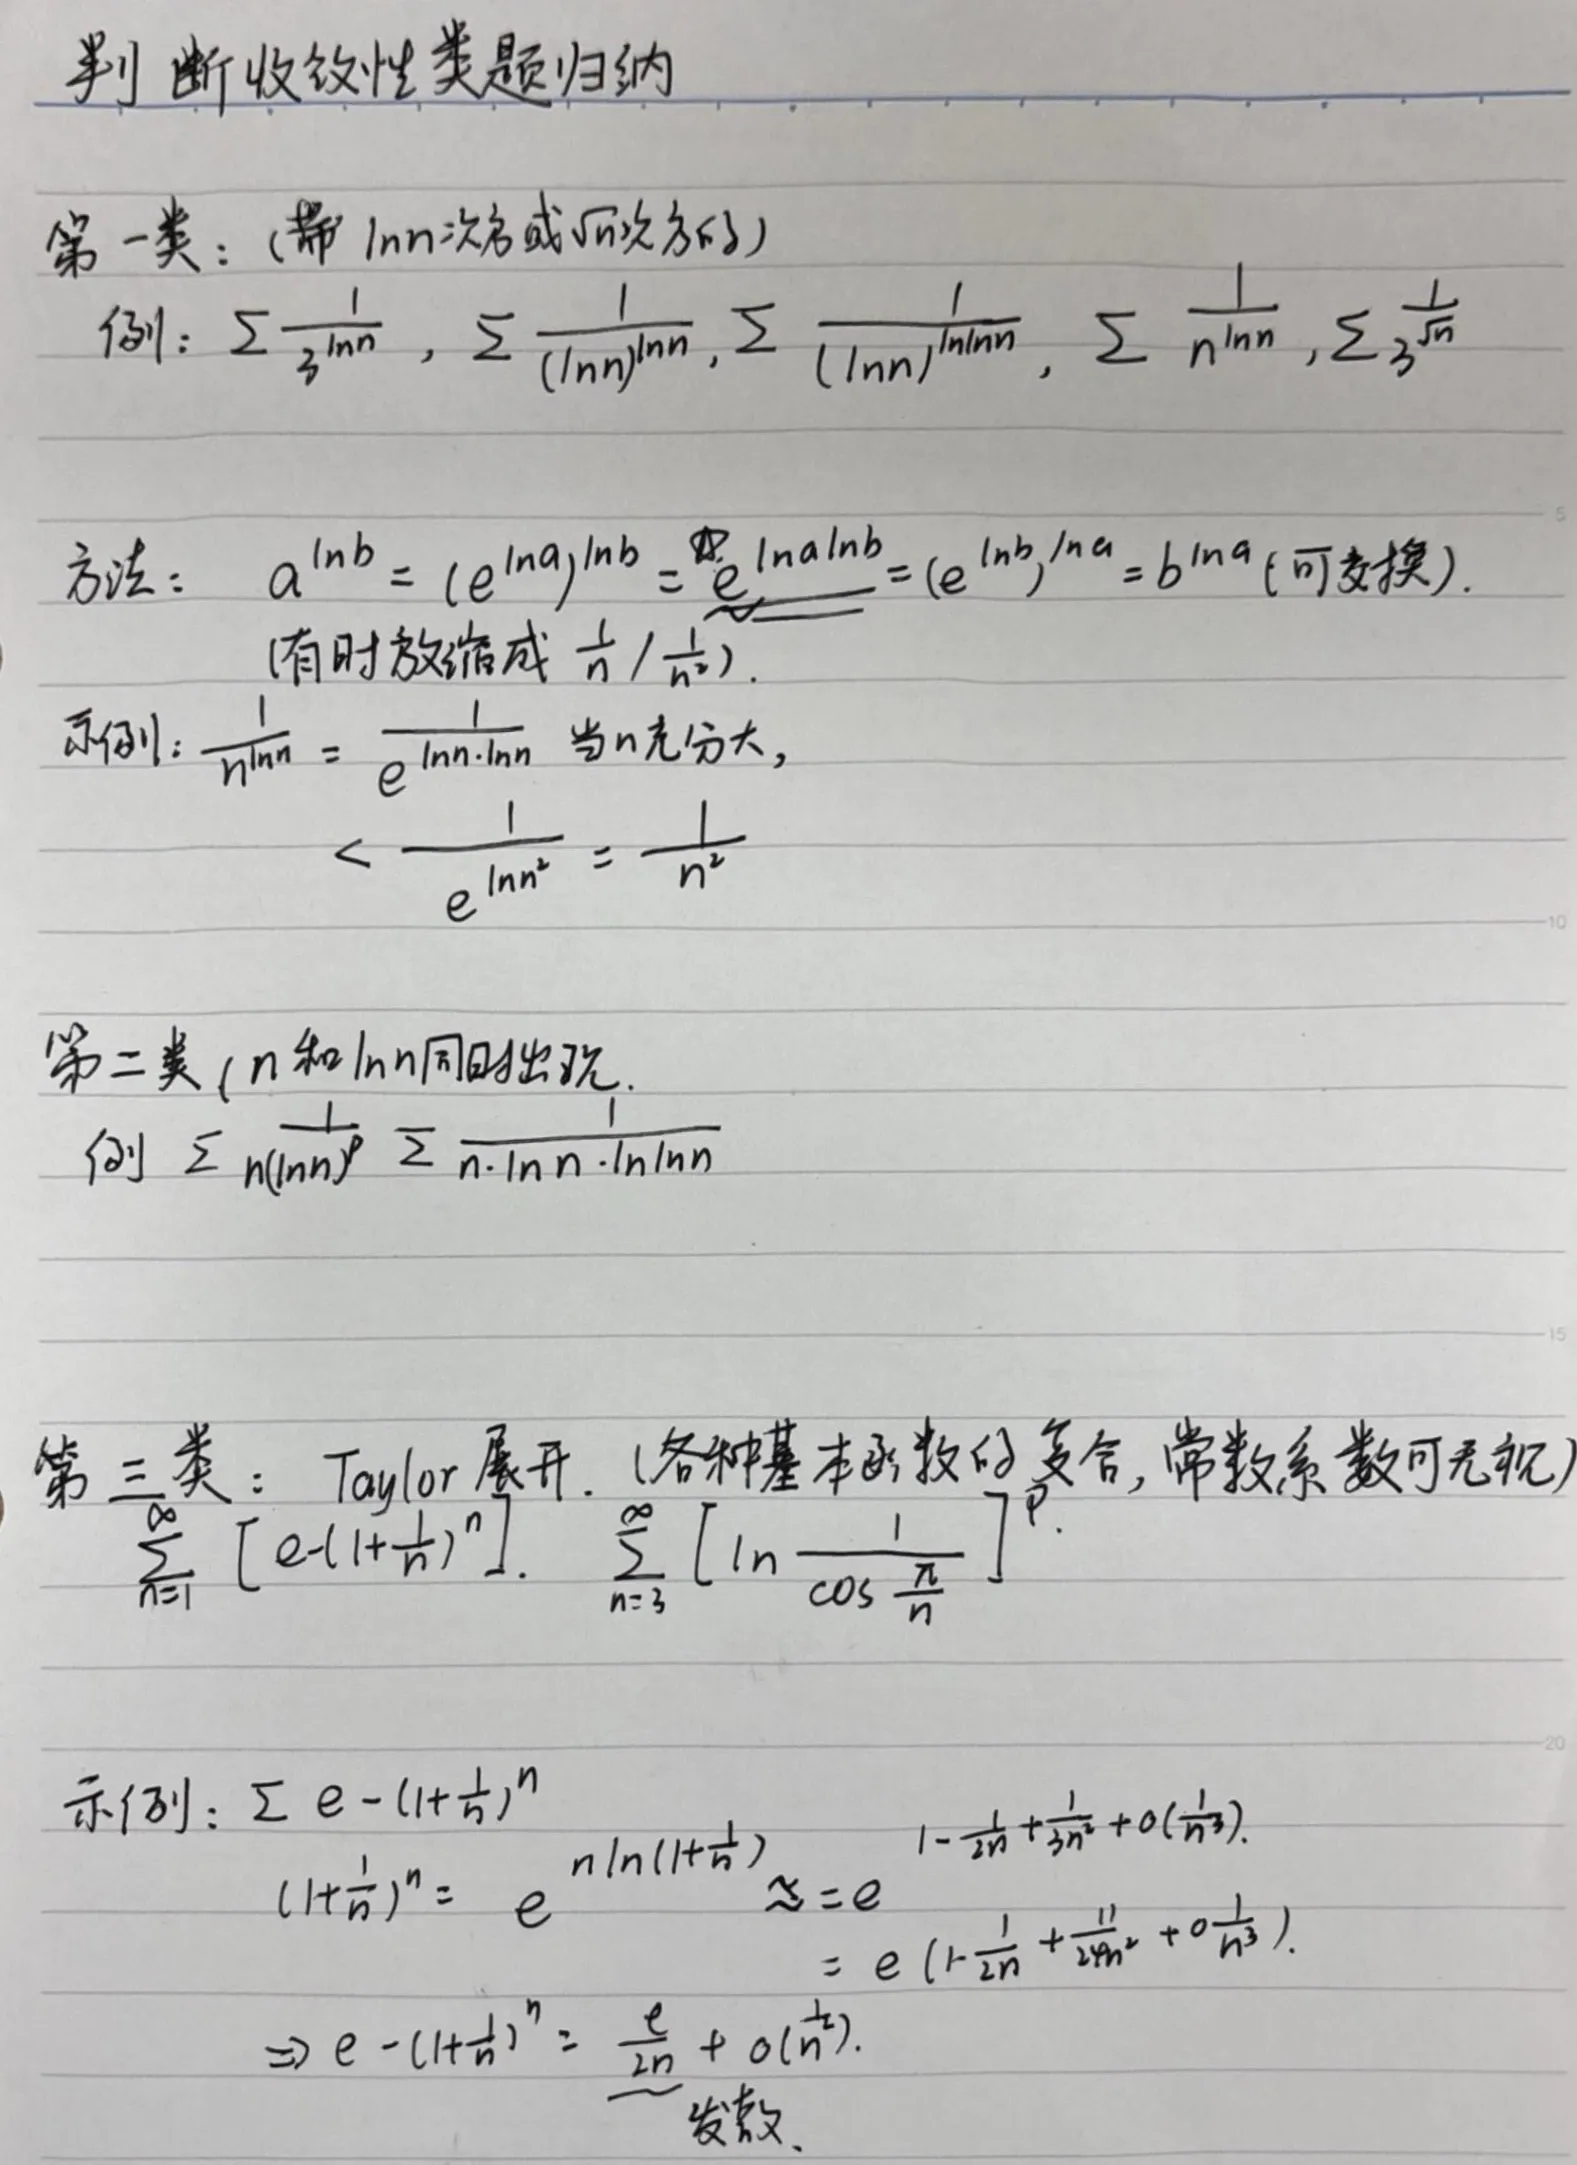 判断收敛性类题归纳
第一类：(带 lnn次方或√n次方的)
例：Σ 1/3^{lnn}，Σ 1/(lnn)^{lnn}，Σ 1/(lnn)^{lnlnn}，Σ 1/n^{lnn}，Σ 1/3^{√n}
方法：a^{lnb} = (e^{lna})^{lnb} = e^{lnalnb} = (e^{lnb})^{lna} = b^{lna} (可交换).
(有时放缩成 1/n / 1/n²).
示例：1/n^{lnn} = 1/e^{lnn·lnn} 当n充分大，
< 1/e^{lnn²} = 1/n²
第二类(n和lnn同时出现.
例 Σ 1/n(lnn)^p Σ 1/n·lnn·lnlnn
第三类：Taylor展开. (各种基本函数的复合, 常数系数可无视)
Σ_{n=1}^{∞} [e-(1+1/n)^n]. Σ_{n=3}^{∞} [ln 1/cos π/n]^p.
示例：Σ e-(1+1/n)^n
(1+1/n)^n = e^{nln(1+1/n)} ≈ = e^{1-1/2n+1/3n²+o(1/n³)}.
= e(1-1/2n+11/24n²+o 1/n³).
⇒ e-(1+1/n)^n = e/2n + o(1/n²).
发散.
5
10
15
20